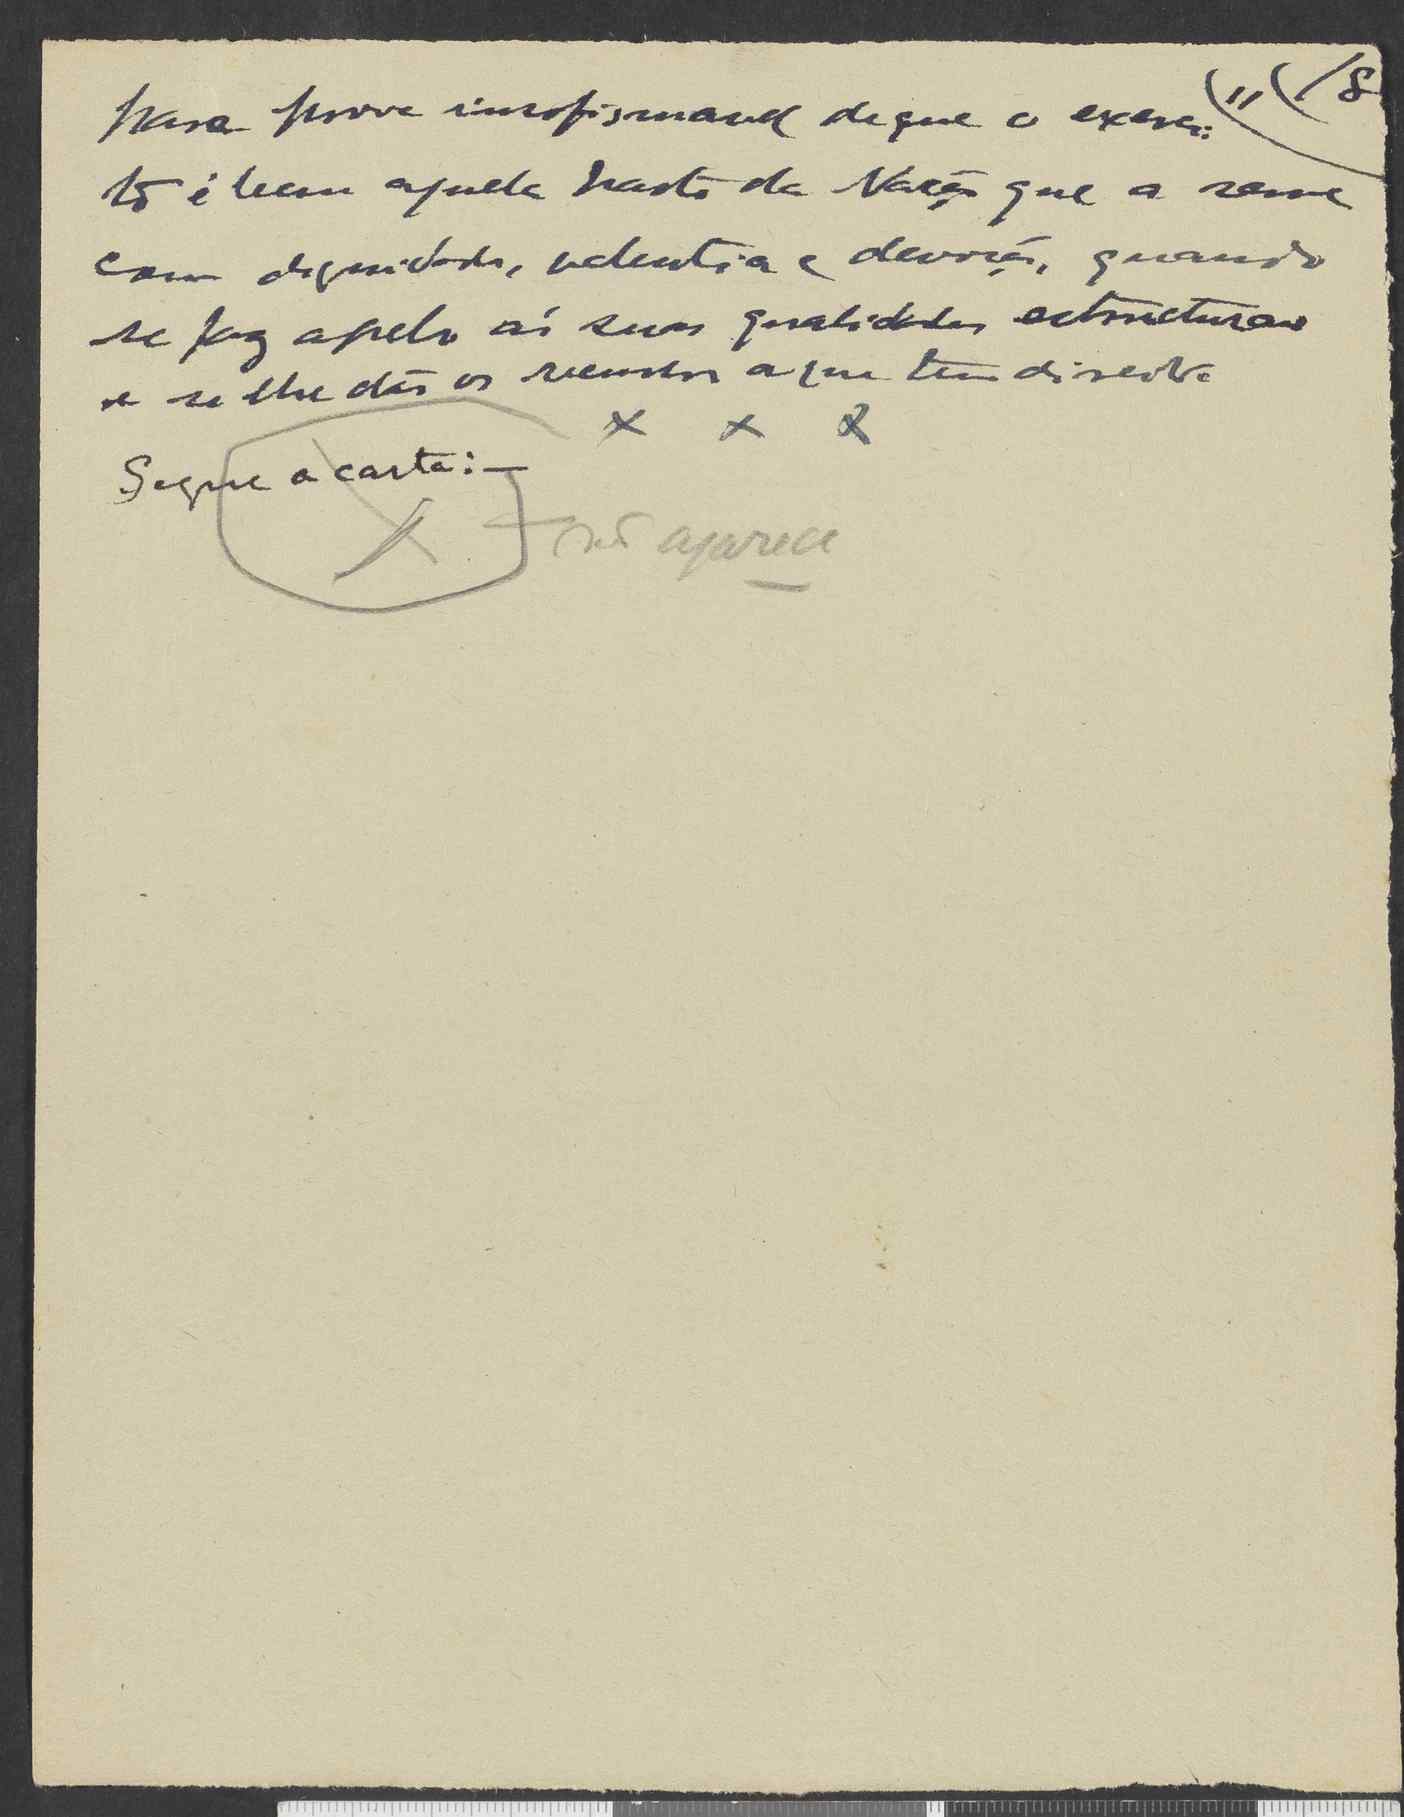 11 18
para prova insofismavel de que o exerci-
to é bem aquela parte da Nação que a serve
com dignidade, valentia e devoção, quando
se faz apelo ás suas qualidades estructuraes
e se lhe dão os recursos a que tem direito
x x x
Segue a carta:—
não aparece